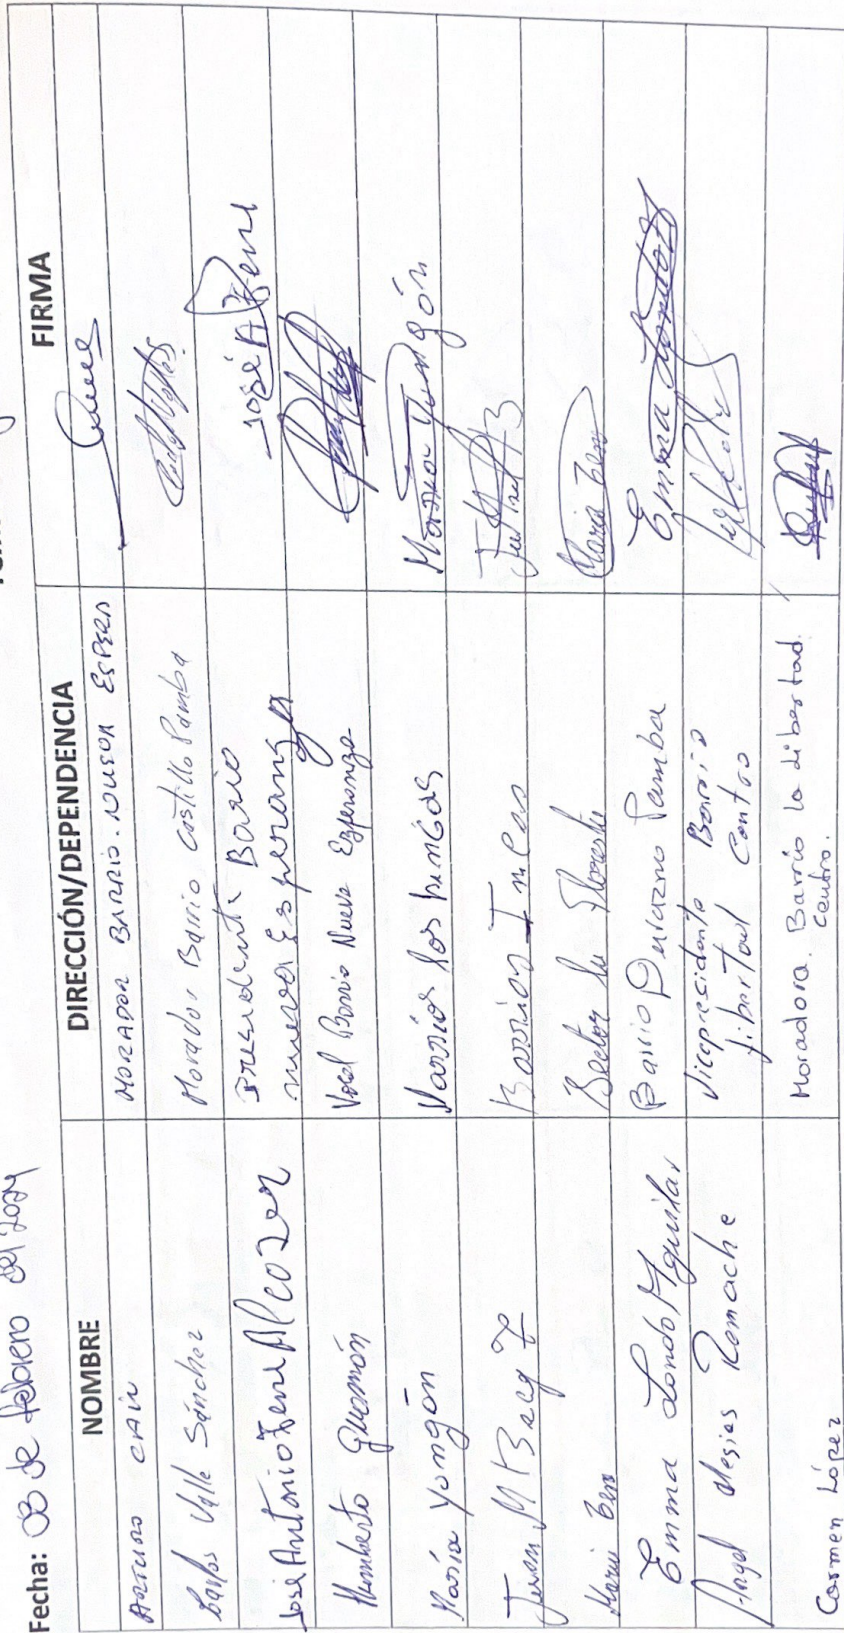 Fecha: 08 de febrero del 2024
NOMBRE DIRECCIÓN/DEPENDENCIA FIRMA
Arturo CAIN MORADOR BARRIO. NUEVA ESPERA
Carlos Valle Sánchez Morador Barrio Castillo Pamba
José Antonio Zeni Alcozer Presidente Barrio José A Zeni
nueva Esperanza
Humberto Guamán Vocal Barrio Nueva Esperanza
María Yungán Varrios los María Yungán
Juan M Barrios Incas
María Sector la Floresta María
Emma Londo Aguilar Barrio Durazno Pamba Emma Londo
Angel Mesias Remache Vicepresidente Barrio
Libertad Centro
Carmen López Moradora. Barrio la Libertad
Centro.